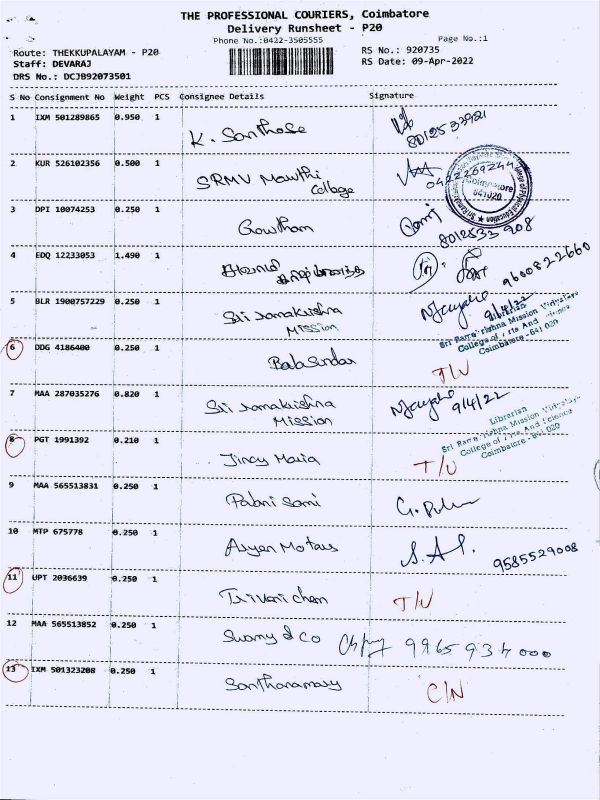 THE PROFESSIONAL COURIERS, Coimbatore
Delivery Runsheet - P20
Phone No.:0422-3505555 Page No.:1
Route: THEKKUPALAYAM - P20 RS No.: 920735
Staff: DEVARAJ RS Date: 09-Apr-2022
DRS No.: DCJB92073501
S No Consignment No Weight PCS Consignee Details Signature
1 IXM 501289865 0.950 1 K. Santhose
2 KUR 526102356 0.500 1 SRMV
College
Coimbatore
641020
3 DPI 10074253 0.250 1 Gowtham 8012533 908
4 EDQ 12233053 1.490 1 9600822660
5 BLR 1900757229 0.250 1 Sri ramakrishna 9/4/22
Mission
Librarian
Sri Ramakrishna Mission Vidyalaya
College of Arts And Science
Coimbatore - 641 020
6 DDG 4186400 0.250 1 BalaSundar
7 MAA 287035276 0.820 1 Sri ramakrishna 9/4/22
Mission
Librarian
Sri Ramakrishna Mission Vidyalaya
College of Arts And Science
Coimbatore - 641 020
8 PGT 1991392 0.210 1 Jincy Maria T/U
9 MAA 565513831 0.250 1 Palani Sami
10 MTP 675778 0.250 1 Aryen Motors S.A. 9585529008
11 UPT 2036639 0.250 1
12 MAA 565513852 0.250 1 Swamy & Co 9965934000
13 IXM 501323208 0.250 1 Santhanamary C/N